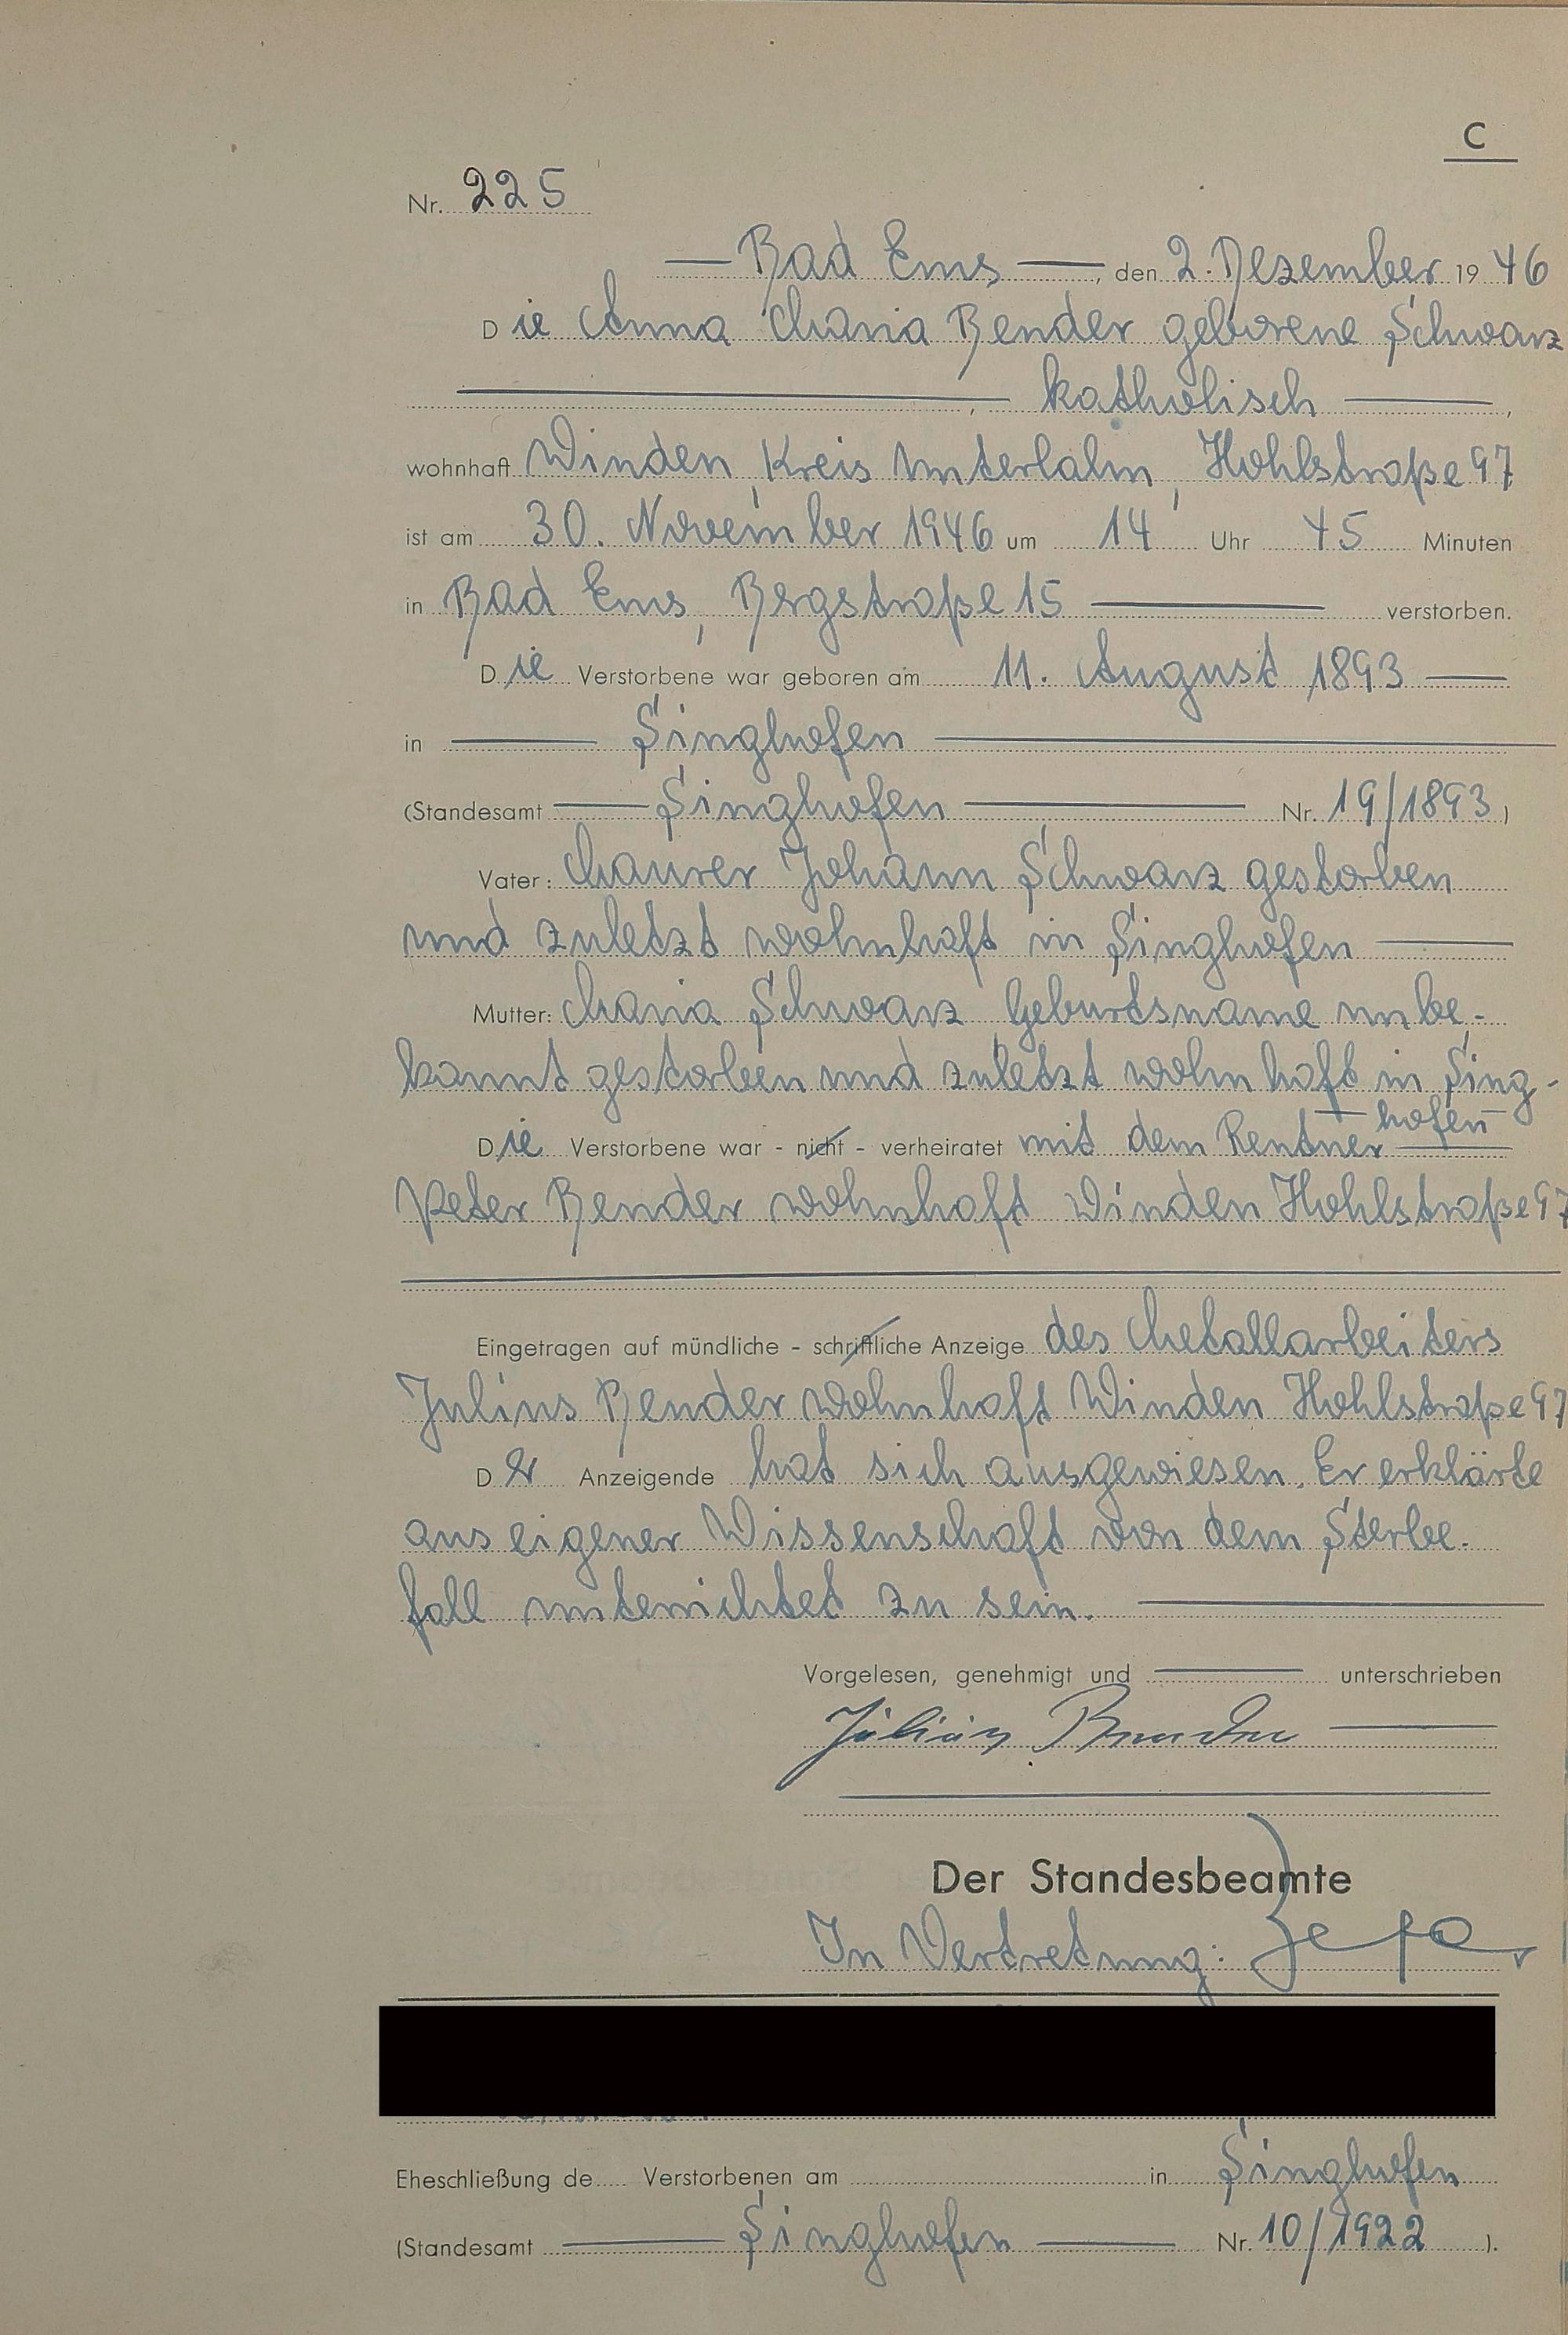 C
Nr. 225
Bad Ems, den 2. Dezember 1946
Die Anna Maria Bender geborene Schwarz
, katholisch ,
wohnhaft Winden, Kreis Unterlahn, Hohlstraße 97
ist am 30. November 1946 um 14 Uhr 45 Minuten
in Bad Ems, Bergstraße 15 verstorben.
Die Verstorbene war geboren am 11. August 1893
in Singhofen
(Standesamt Singhofen Nr. 19/1893)
Vater: Maurer Johann Schwarz gestorben
und zuletzt wohnhaft in Singhofen
Mutter: Maria Schwarz Geburtsname unbe-
kannt gestorben und zuletzt wohnhaft in Sing-
hofen
Die Verstorbene war - nicht - verheiratet mit dem Rentner
Peter Bender wohnhaft Winden Hohlstraße 97
Eingetragen auf mündliche - schriftliche Anzeige des Metallarbeiters
Julius Bender wohnhaft Winden Hohlstraße 97
Der Anzeigende hat sich ausgewiesen. Er erklärte
aus eigener Wissenschaft von dem Sterbe-
fall unterrichtet zu sein.
Vorgelesen, genehmigt und unterschrieben
Julius Bender
Der Standesbeamte
In Vertretung:
Eheschließung de Verstorbenen am in Singhofen
(Standesamt Singhofen Nr. 10/1922).